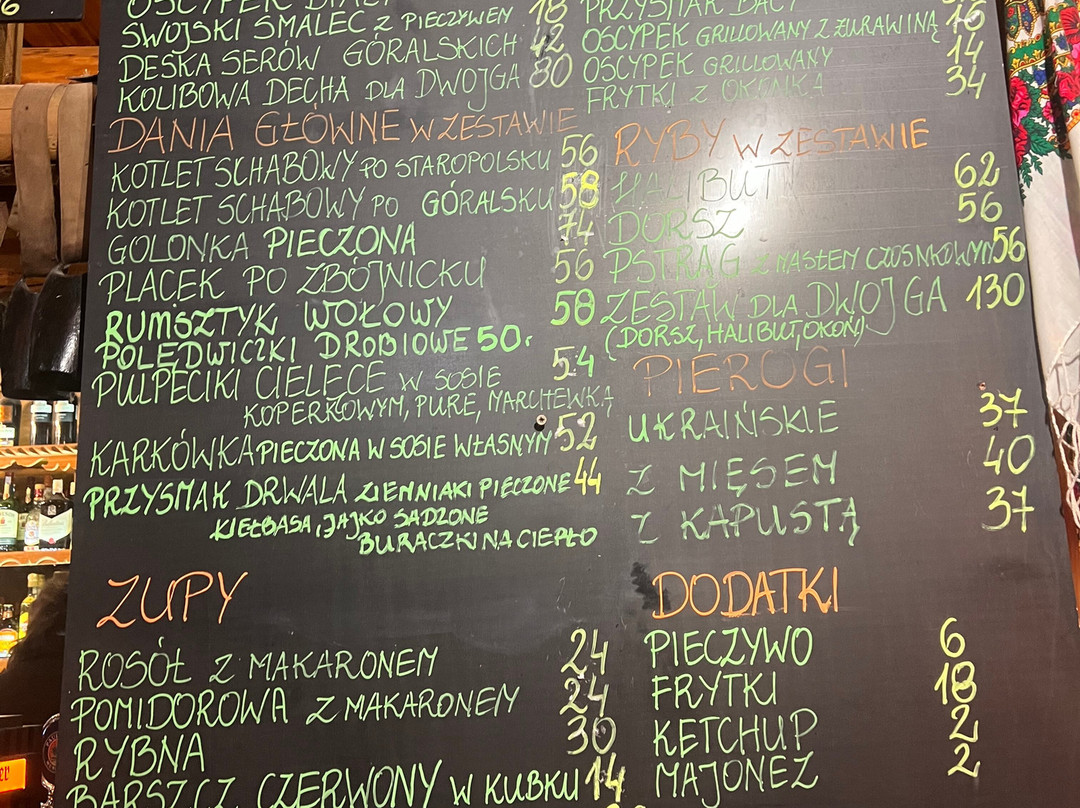 6
OSCYPEK BIAŁY
SWOJSKI SMALEC Z PIECZYWEM 18
DESKA SERÓW GÓRALSKICH 42
KOLIBOWA DECHA DLA DWOJGA 80
DANIA GŁÓWNE W ZESTAWIE
KOTLET SCHABOWY PO STAROPOLSKU 56
KOTLET SCHABOWY PO GÓRALSKU 58
GOLONKA PIECZONA 74
PLACEK PO ZBÓJNICKU 56
RUMSZTYK WOŁOWY 58
POLĘDWICZKI DROBIOWE 50.
PULPECIKI CIELĘCE W SOSIE 54
KOPERKOWYM, PURE, MARCHEWKĄ
KARKÓWKA PIECZONA W SOSIE WŁASNYM 52
PRZYSMAK DRWALA ZIEMNIAKI PIECZONE 44
KIEŁBASA, JAJKO SADZONE
BURACZKI NA CIEPŁO
ZUPY
ROSÓŁ Z MAKARONEM 24
POMIDOROWA Z MAKARONEM 24
RYBNA 30
BARSZCZ CZERWONY W KUBKU 14
PRZYSMAK BACY
OSCYPEK GRILLOWANY Z ŻURAWINĄ 16
OSCYPEK GRILLOWANY 14
FRYTKI Z OKONKA 34
RYBY W ZESTAWIE
HALIBUT 62
DORSZ 56
PSTRĄG Z MASŁEM CZOSNKOWYM 56
ZESTAW DLA DWOJGA 130
(DORSZ, HALIBUT, OKOŃ)
PIEROGI
UKRAIŃSKIE 37
Z MIĘSEM 40
Z KAPUSTĄ 37
DODATKI
PIECZYWO 6
FRYTKI 18
KETCHUP 2
MAJONEZ 2